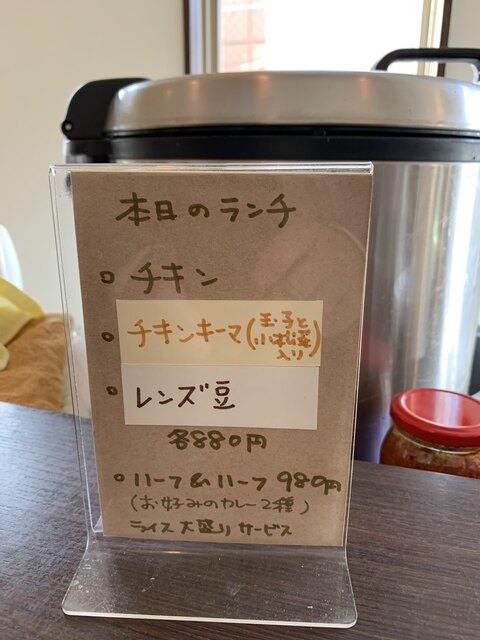 本日のランチ
○ チキン
○ チキンキーマ(玉子と
小松菜
入り)
○ レンズ豆
各880円
○ ハーフ&ハーフ 980円
(お好みのカレー2種)
ライス大盛りサービス